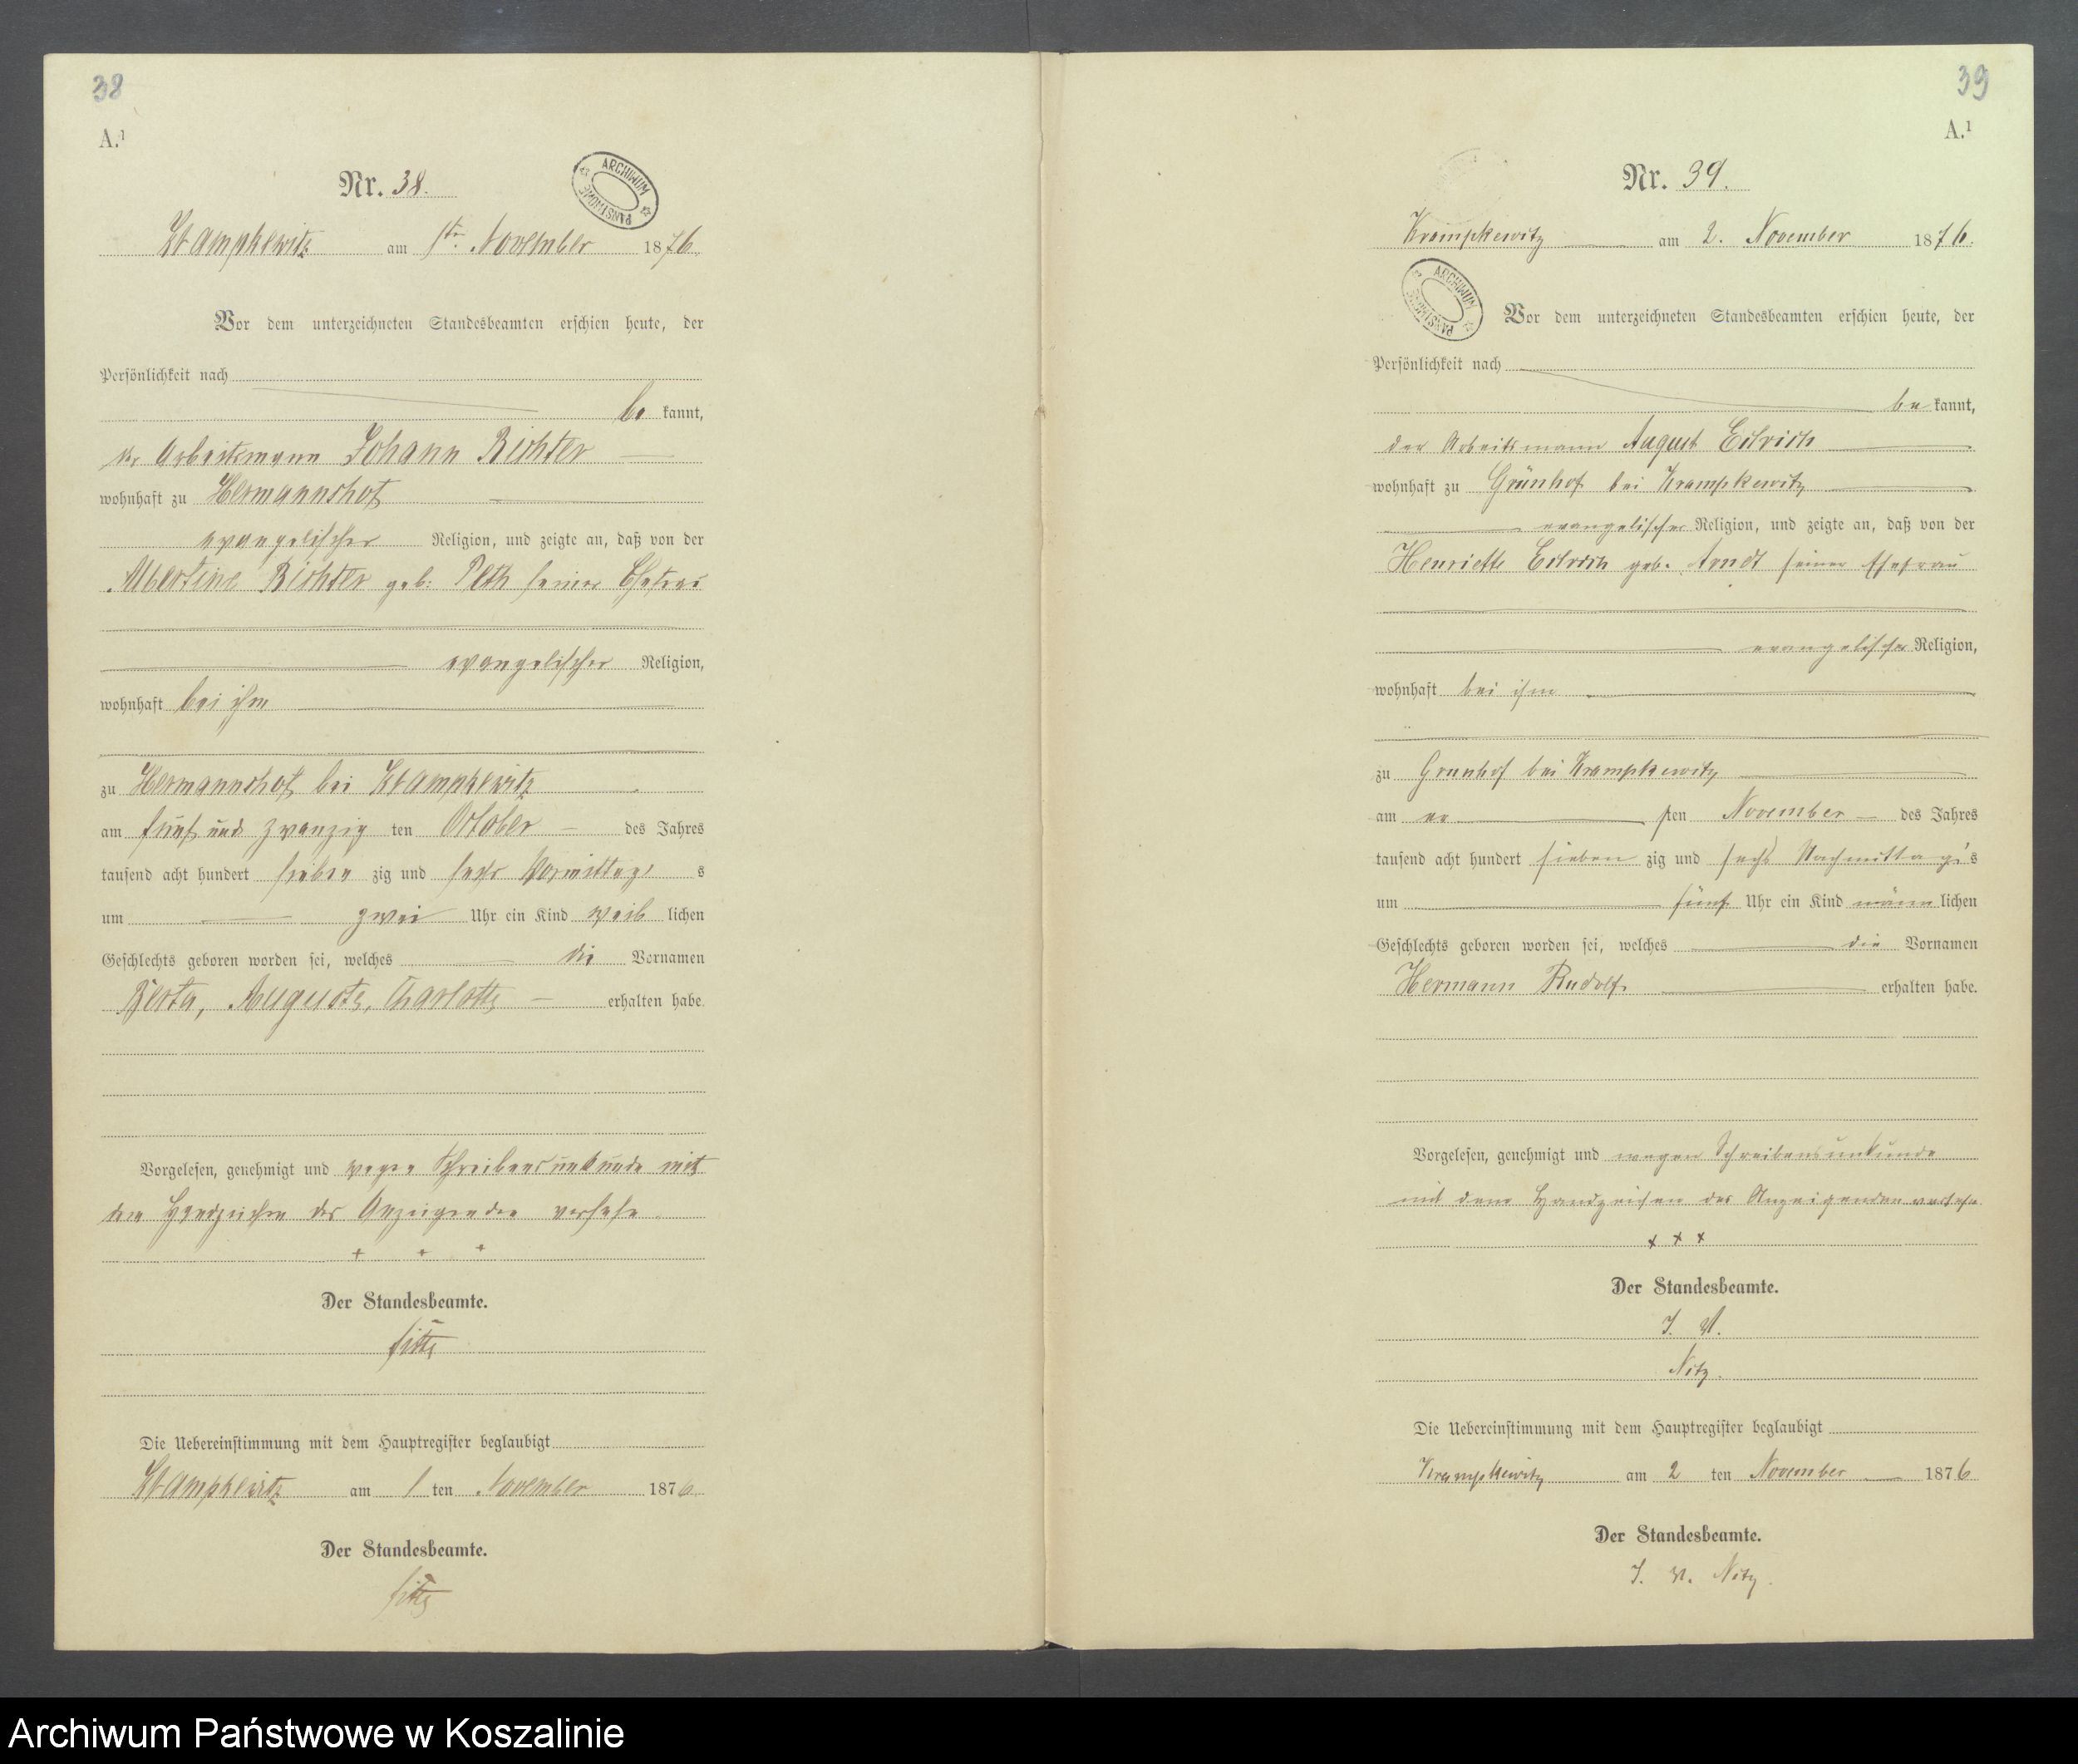 38
A.¹
Nr. 38.
ARCHIWUM PAŃSTWOWE
Krampkewitz am 1ten November 1876.
Vor dem unterzeichneten Standesbeamten erschien heute, der
Persönlichkeit nach
be kannt,
der Arbeitsmann Johann Richter
wohnhaft zu Hermannshof
evangelischer Religion, und zeigte an, daß von der
Albertine Richter geb: Peth seiner Ehefrau
evangelischer Religion,
wohnhaft bei ihm
zu Hermannshof bei Krampkewitz
am fünf und zwanzig ten October des Jahres
tausend acht hundert sieben zig und sechs Vormittag s
um zwei Uhr ein Kind weib lichen
Geschlechts geboren worden sei, welches die Vornamen
Berta, Auguste, Charlotte erhalten habe.
Vorgelesen, genehmigt und wegen Schreibensunkunde mit
dem Handzeichen des Anzeigenden versehn.
+ + +
Der Standesbeamte.
Die Uebereinstimmung mit dem Hauptregister beglaubigt
Krampkewitz am 1 ten November 1876.
Der Standesbeamte.
39
A.¹
Nr. 39.
Krampkewitz am 2. November 1876.
ARCHIWUM PAŃSTWOWE
Vor dem unterzeichneten Standesbeamten erschien heute, der
Persönlichkeit nach
be kannt,
der Arbeitsmann August Eilrich
wohnhaft zu Grünhof bei Krampkewitz
evangelischer Religion, und zeigte an, daß von der
Henriette Eilrich geb. Arndt seiner Ehefrau
evangelischer Religion,
wohnhaft bei ihm
zu Grünhof bei Krampkewitz
am er sten November des Jahres
tausend acht hundert sieben zig und sechs Nachmittag's
um fünf Uhr ein Kind männ lichen
Geschlechts geboren worden sei, welches die Vornamen
Hermann Rudolf erhalten habe.
Vorgelesen, genehmigt und wegen Schreibensunkunde
mit dem Handzeichen des Anzeigenden versehn
x x x
Der Standesbeamte.
I. V.
Nitz.
Die Uebereinstimmung mit dem Hauptregister beglaubigt
Krampkewitz am 2 ten November 1876
Der Standesbeamte.
I. V. Nitz.
Archiwum Państwowe w Koszalinie